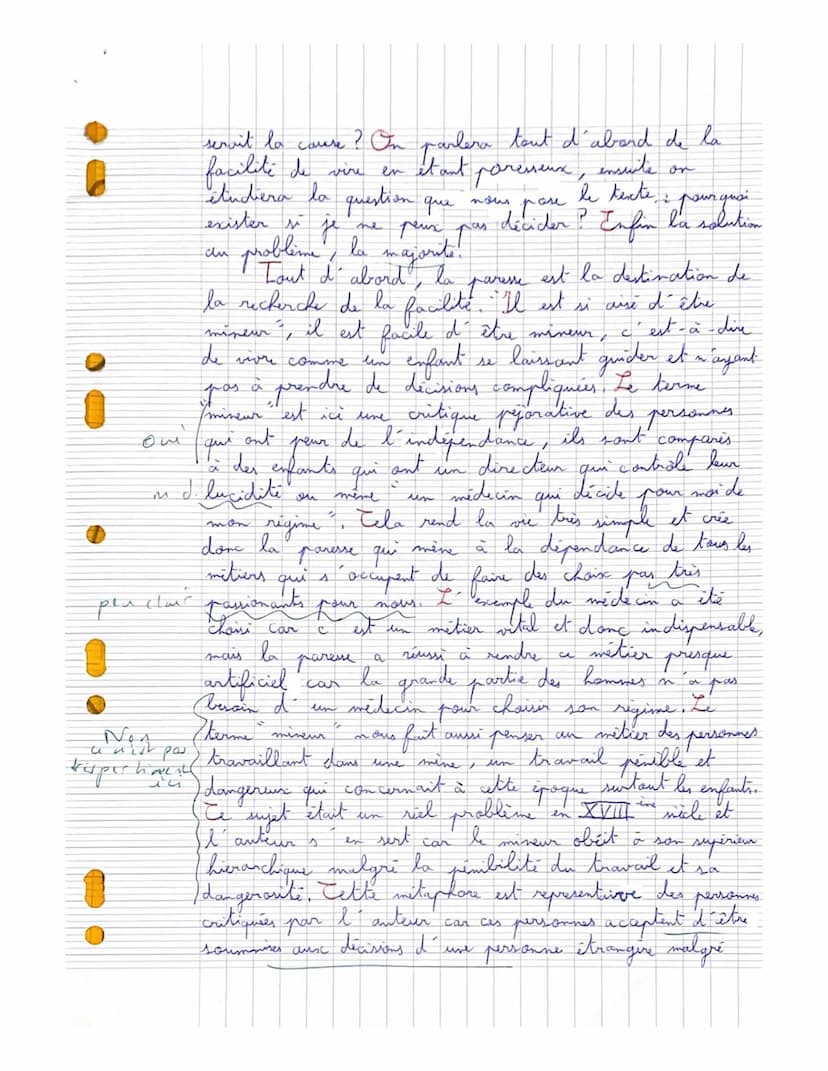 serait la cause ? On parlera tout d'abord de la
facilité de vivre en étant paresseux, ensuite on
étudiera la question que nous pose le texte : pourquoi
exister si je ne peux pas décider ? Enfin la solution
au problème, la majorité.
Tout d'abord, la paresse est la destination de
la recherche de la facilité. "Il est si aisé d'être
mineur", il est facile d'être mineur, c'est-à-dire
de vivre comme un enfant se laissant guider et n'ayant
pas à prendre de décisions compliquées. Le terme
"mineur" est ici une critique péjorative des personnes
oui qui ont peur de l'indépendance, ils sont comparés
à des enfants qui ont un directeur qui contrôle leur
m.d. lucidité ou même "un médecin qui décide pour moi de
mon régime". Cela rend la vie très simple et crée
donc la paresse qui mène à la dépendance de tous les
métiers qui s'occupent de faire des choix pas très
peu clair passionants pour nous. L'exemple du médecin a été
choisi car c'est un métier vital et donc indispensable,
mais la paresse a réussi à rendre ce métier presque
artificiel car la grande partie des hommes n'a pas
besoin d'un médecin pour choisir son régime. Le
Non terme "mineur" nous fait aussi penser au métier des personnes
ce n'est pas travaillant dans une mine, un travail pénible et
très pertinent ici dangereux qui concernait à cette époque surtout les enfants.
Ce sujet était un réel problème en XVIII ième siècle et
l'auteur s'en sert car le mineur obéit à son supérieur
hierarchique malgré la pénibilité du travail et sa
dangerosité. Cette métaphore est representive des personnes
critiquées par l'auteur car ces personnes acceptent d'être
soummises aux décisions d'une personne étrangère malgré